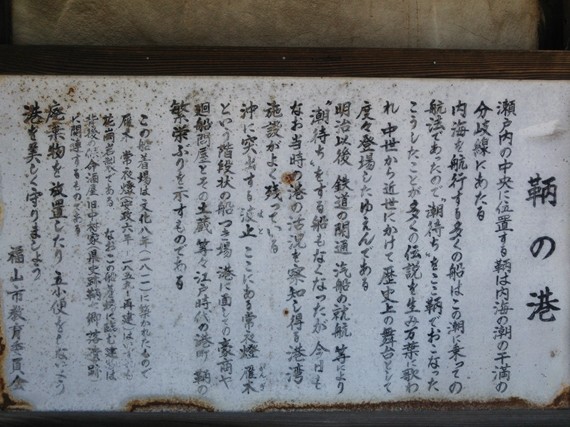 鞆の港
瀬戸内の中央に位置する鞆は内海の潮の干満の
分岐線にあたる
内海を航行する多くの船はこの潮に乗っての
航法であったので"潮待ち"をここ鞆でおこなった
こうしたことが多くの伝説を生み万葉に歌わ
れ 中世から近世にかけて歴史上の舞台として
度々登場したゆえんである
明治以後 鉄道の開通 汽船の就航 等により
"潮待ち"をする船もなくなったが 今日も
なお当時の港の活況を察知し得る港湾
施設がよく残っている
沖に突出する波止 ここにある常夜燈 雁木
という階段状の船つき場 港に面しての豪商や
廻船問屋とその土蔵 等々江戸時代の港町 鞆の
繁栄ぶりを示すものである
この船着場は文化八年(一八一一)に築かれたもので
雁木 常夜燈(安政六年 一八五九)再建はいずれも
なおこの船着場に臨む建物は
に関連するものである
廃棄物を放置したり 立小便をしないよう
港を美しく守りましょう
福山市教育委員会